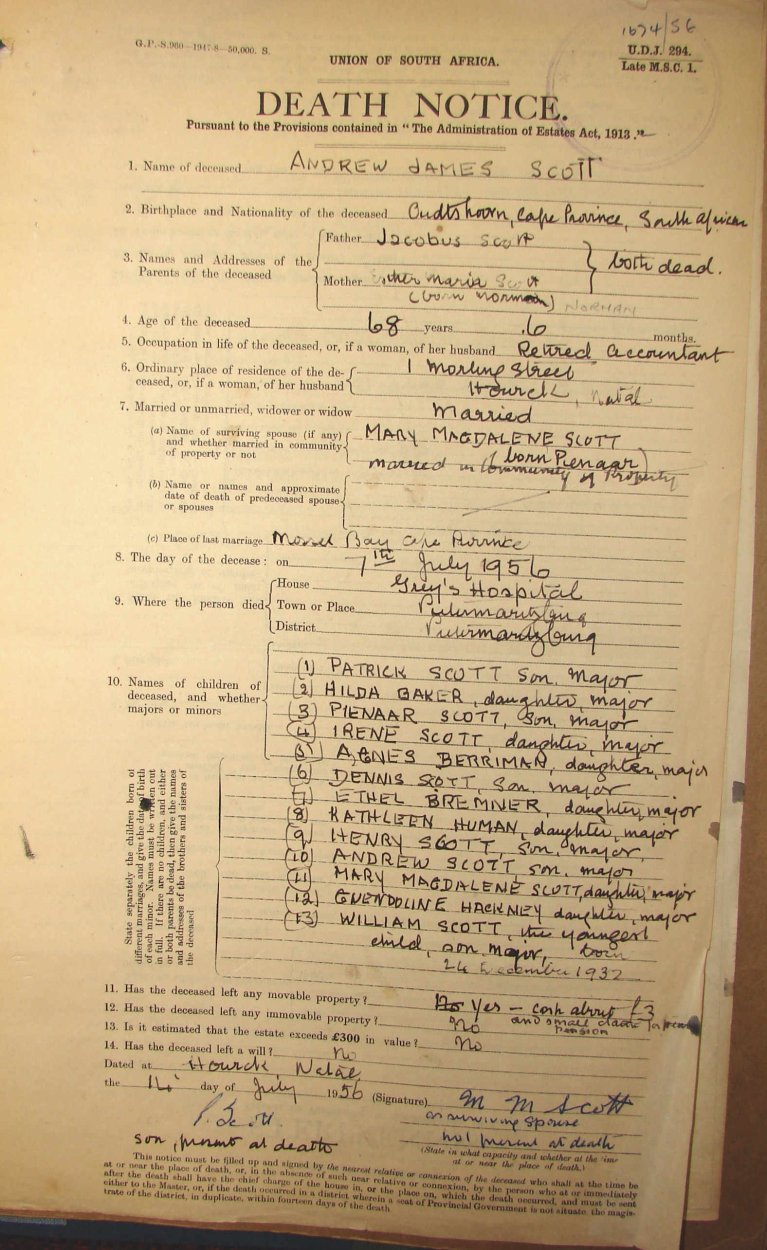 1674/56
G.P.-S.960—1947-8—50,000. S.
U.D.J. 294.
Late M.S.C. 1.
UNION OF SOUTH AFRICA.
DEATH NOTICE.
Pursuant to the Provisions contained in "The Administration of Estates Act, 1913."
1. Name of deceased ANDREW JAMES SCOTT
2. Birthplace and Nationality of the deceased Oudtshoorn, Cape Province, South African
3. Names and Addresses of the Parents of the deceased
Father Jacobus Scott
both dead.
Mother Maria Scott
(born Norman) NORMAN
4. Age of the deceased 68 years 6 months.
5. Occupation in life of the deceased, or, if a woman, of her husband Retired Accountant
6. Ordinary place of residence of the de-
ceased, or, if a woman, of her husband
1 Morling Street
Howick, Natal
7. Married or unmarried, widower or widow Married
(a) Name of surviving spouse (if any)
and whether married in community
of property or not
MARY MAGDALENE SCOTT
(born Pienaar)
married in Community of Property
(b) Name or names and approximate
date of death of predeceased spouse
or spouses
(c) Place of last marriage Mossel Bay Cape Province
8. The day of the decease: on 7th July 1956
9. Where the person died
House Grey's Hospital
Town or Place Pietermaritzburg
District Pietermaritzburg
10. Names of children of
deceased, and whether
majors or minors
(1) PATRICK SCOTT Son, Major
(2) HILDA BAKER, daughter, major
(3) PIENAAR SCOTT, Son, major
(4) IRENE SCOTT, daughter, major
(5) AGNES BERRIMAN, daughter, major
(6) DENNIS SCOTT, Son, major
(7) ETHEL BREMNER, daughter, major
(8) KATHLEEN HUMAN, daughter, major
(9) HENRY SCOTT, Son, major,
(10) ANDREW SCOTT, son, major
(11) MARY MAGDALENE SCOTT, daughter, major
(12) GWENDOLINE HACKNEY daughter, major
(13) WILLIAM SCOTT, the youngest
child, son, major, born
24 December 1932
State separately the children born of
different marriages, and give the date of birth
of each minor. Names must be written out
in full. If there are no children, and either
or both parents be dead, then give the names
and addresses of the brothers and sisters of
the deceased
11. Has the deceased left any movable property? No Yes – cash about £3
and small claim for pension
12. Has the deceased left any immovable property? No
13. Is it estimated that the estate exceeds £300 in value? No
14. Has the deceased left a will? No
Dated at Howick, Natal
the 14 day of July 1956 (Signature) M M Scott
P. Scott.
as surviving spouse
son, present at death
not present at death
(State in what capacity and whether at the time
at or near the place of death.)
This notice must be filled up and signed by the nearest relative or connexion of the deceased who shall at the time be
at or near the place of death, or, in the absence of such near relative or connexion, by the person who at or immediately
after the death shall have the chief charge of the house in, or the place on, which the death occurred, and must be sent
either to the Master, or, if the death occurred in a district wherein a seat of Provincial Government is not situate, the magis-
trate of the district, in duplicate, within fourteen days of the death